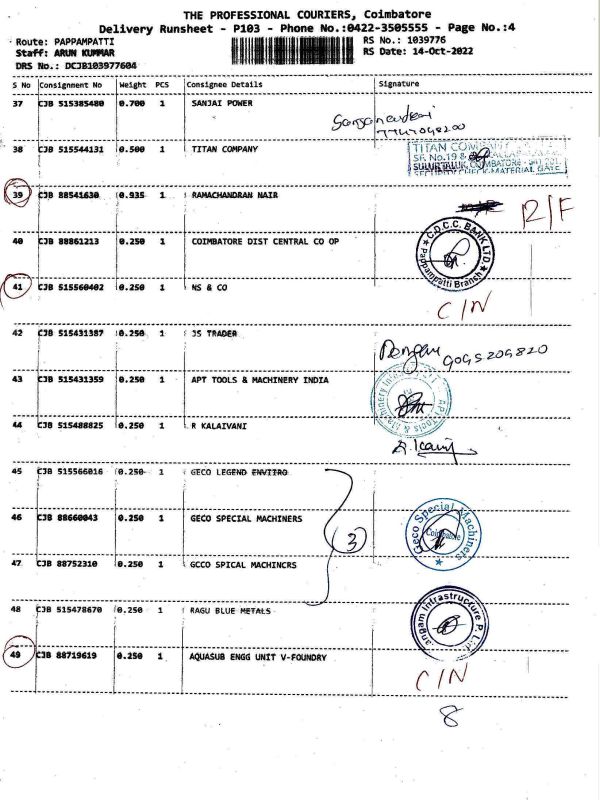 THE PROFESSIONAL COURIERS, Coimbatore
Delivery Runsheet - P103 - Phone No.:0422-3505555 - Page No.:4
Route: PAPPAMPATTI RS No.: 1039776
Staff: ARUN KUMMAR RS Date: 14-Oct-2022
DRS No.: DCJB103977604
S No Consignment No Weight PCS Consignee Details Signature
37 CJB 515385480 0.700 1 SANJAI POWER
38 CJB 515544131 0.500 1 TITAN COMPANY
TITAN COM
SF. No.19 &
SULUR TALUK, COIMBATORE
SECURITY CHECK-MATERIAL GATE
39 CJB 88541630 0.935 1 RAMACHANDRAN NAIR R/F
40 CJB 88861213 0.250 1 COIMBATORE DIST CENTRAL CO OP
C.D.C.C. BANK LTD
Pappampatti Branch
41 CJB 515560402 0.250 1 NS & CO C/N
42 CJB 515431387 0.250 1 JS TRADER
43 CJB 515431359 0.250 1 APT TOOLS & MACHINERY INDIA
APT Tools & Machinery India
44 CJB 515488825 0.250 1 R KALAIVANI
45 CJB 515566016 0.250 1 GECO LEGEND ENVITRO
46 CJB 88660043 0.250 1 GECO SPECIAL MACHINERS 3
Geco Special Machiners
Coimbatore
47 CJB 88752310 0.250 1 GCCO SPICAL MACHINCRS
48 CJB 515478670 0.250 1 RAGU BLUE METALS
Infrastructure P. Ltd
49 CJB 88719619 0.250 1 AQUASUB ENGG UNIT V-FOUNDRY C/N
8